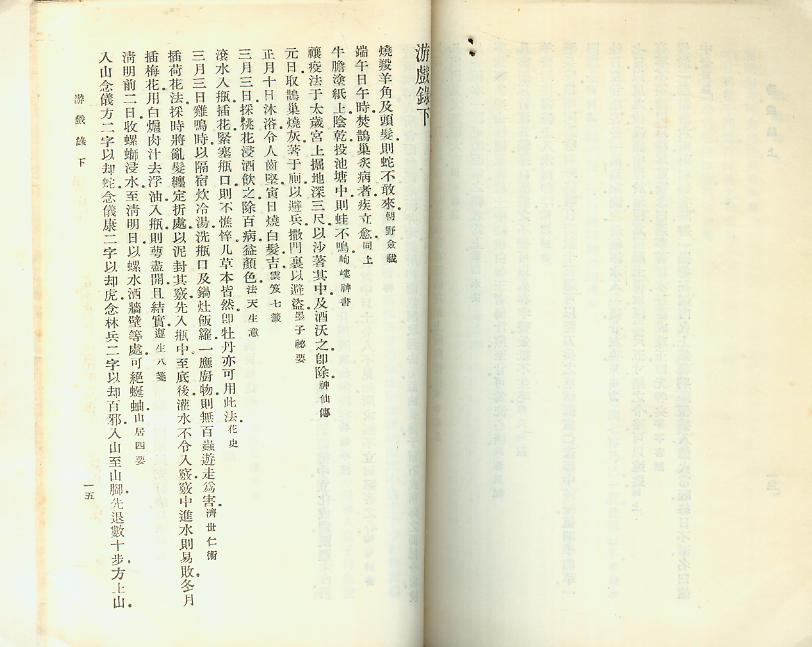 游戲錄下
燒羖羊角及頭髮則蛇不敢來朝野僉載
端午日午時焚鵲巢灸病者疾立愈同上
牛膽塗紙上陰乾投池塘中則蛙不鳴岣嶁神書
禳疫法于太歲宮上掘地深三尺以沙著其中及酒沃之卽除神仙傳
元日取鵲巢燒灰著于廁以避兵撒門裏以避盜墨子祕要
正月十日沐浴令人齒堅寅日燒白髮吉雲笈七籤
三月三日採桃花浸酒飲之除百病益顏色法天生意
滾水入瓶插花緊塞瓶口則不憔悴凡草本皆然卽牡丹亦可用此法花史
三月三日雞鳴時以隔宿炊冷湯洗瓶口及鍋灶飯籮一應廚物則無百蟲遊走爲害濟世仁術
插荷花法採時將亂髮纏定折處以泥封其竅先入瓶中至底後灌水不令入竅竅中進水則易敗冬月
插梅花用白爐肉汁去浮油入瓶則萼盡開且結實遵生八箋
淸明前二日收螺螄浸水至淸明日以螺水洒牆壁等處可絕蜒蚰山居四要
入山念儀方二字以却蛇念儀康二字以却虎念林兵二字以却百邪入山至山腳先退數十步方上山
游戲錄下
一五